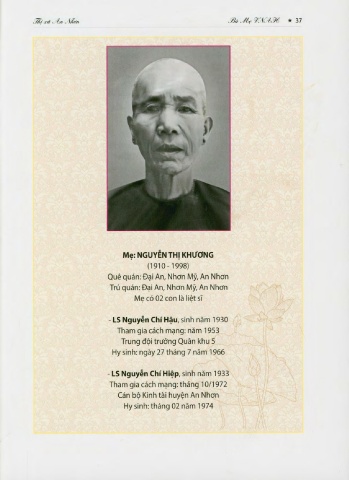 Thị xã An Nhơn
Bà Mẹ VNAH ★ 37
Mẹ: NGUYỄN THỊ KHƯƠNG
(1910 - 1998)
Quê quán: Đại An, Nhơn Mỹ, An Nhơn
Trú quán: Đại An, Nhơn Mỹ, An Nhơn
Mẹ có 02 con là liệt sĩ
- LS Nguyễn Chí Hậu, sinh năm 1930
Tham gia cách mạng: năm 1953
Trung đội trưởng Quân khu 5
Hy sinh: ngày 27 tháng 7 năm 1966
- LS Nguyễn Chí Hiệp, sinh năm 1933
Tham gia cách mạng: tháng 10/1972
Cán bộ Kinh tài huyện An Nhơn
Hy sinh: tháng 02 năm 1974